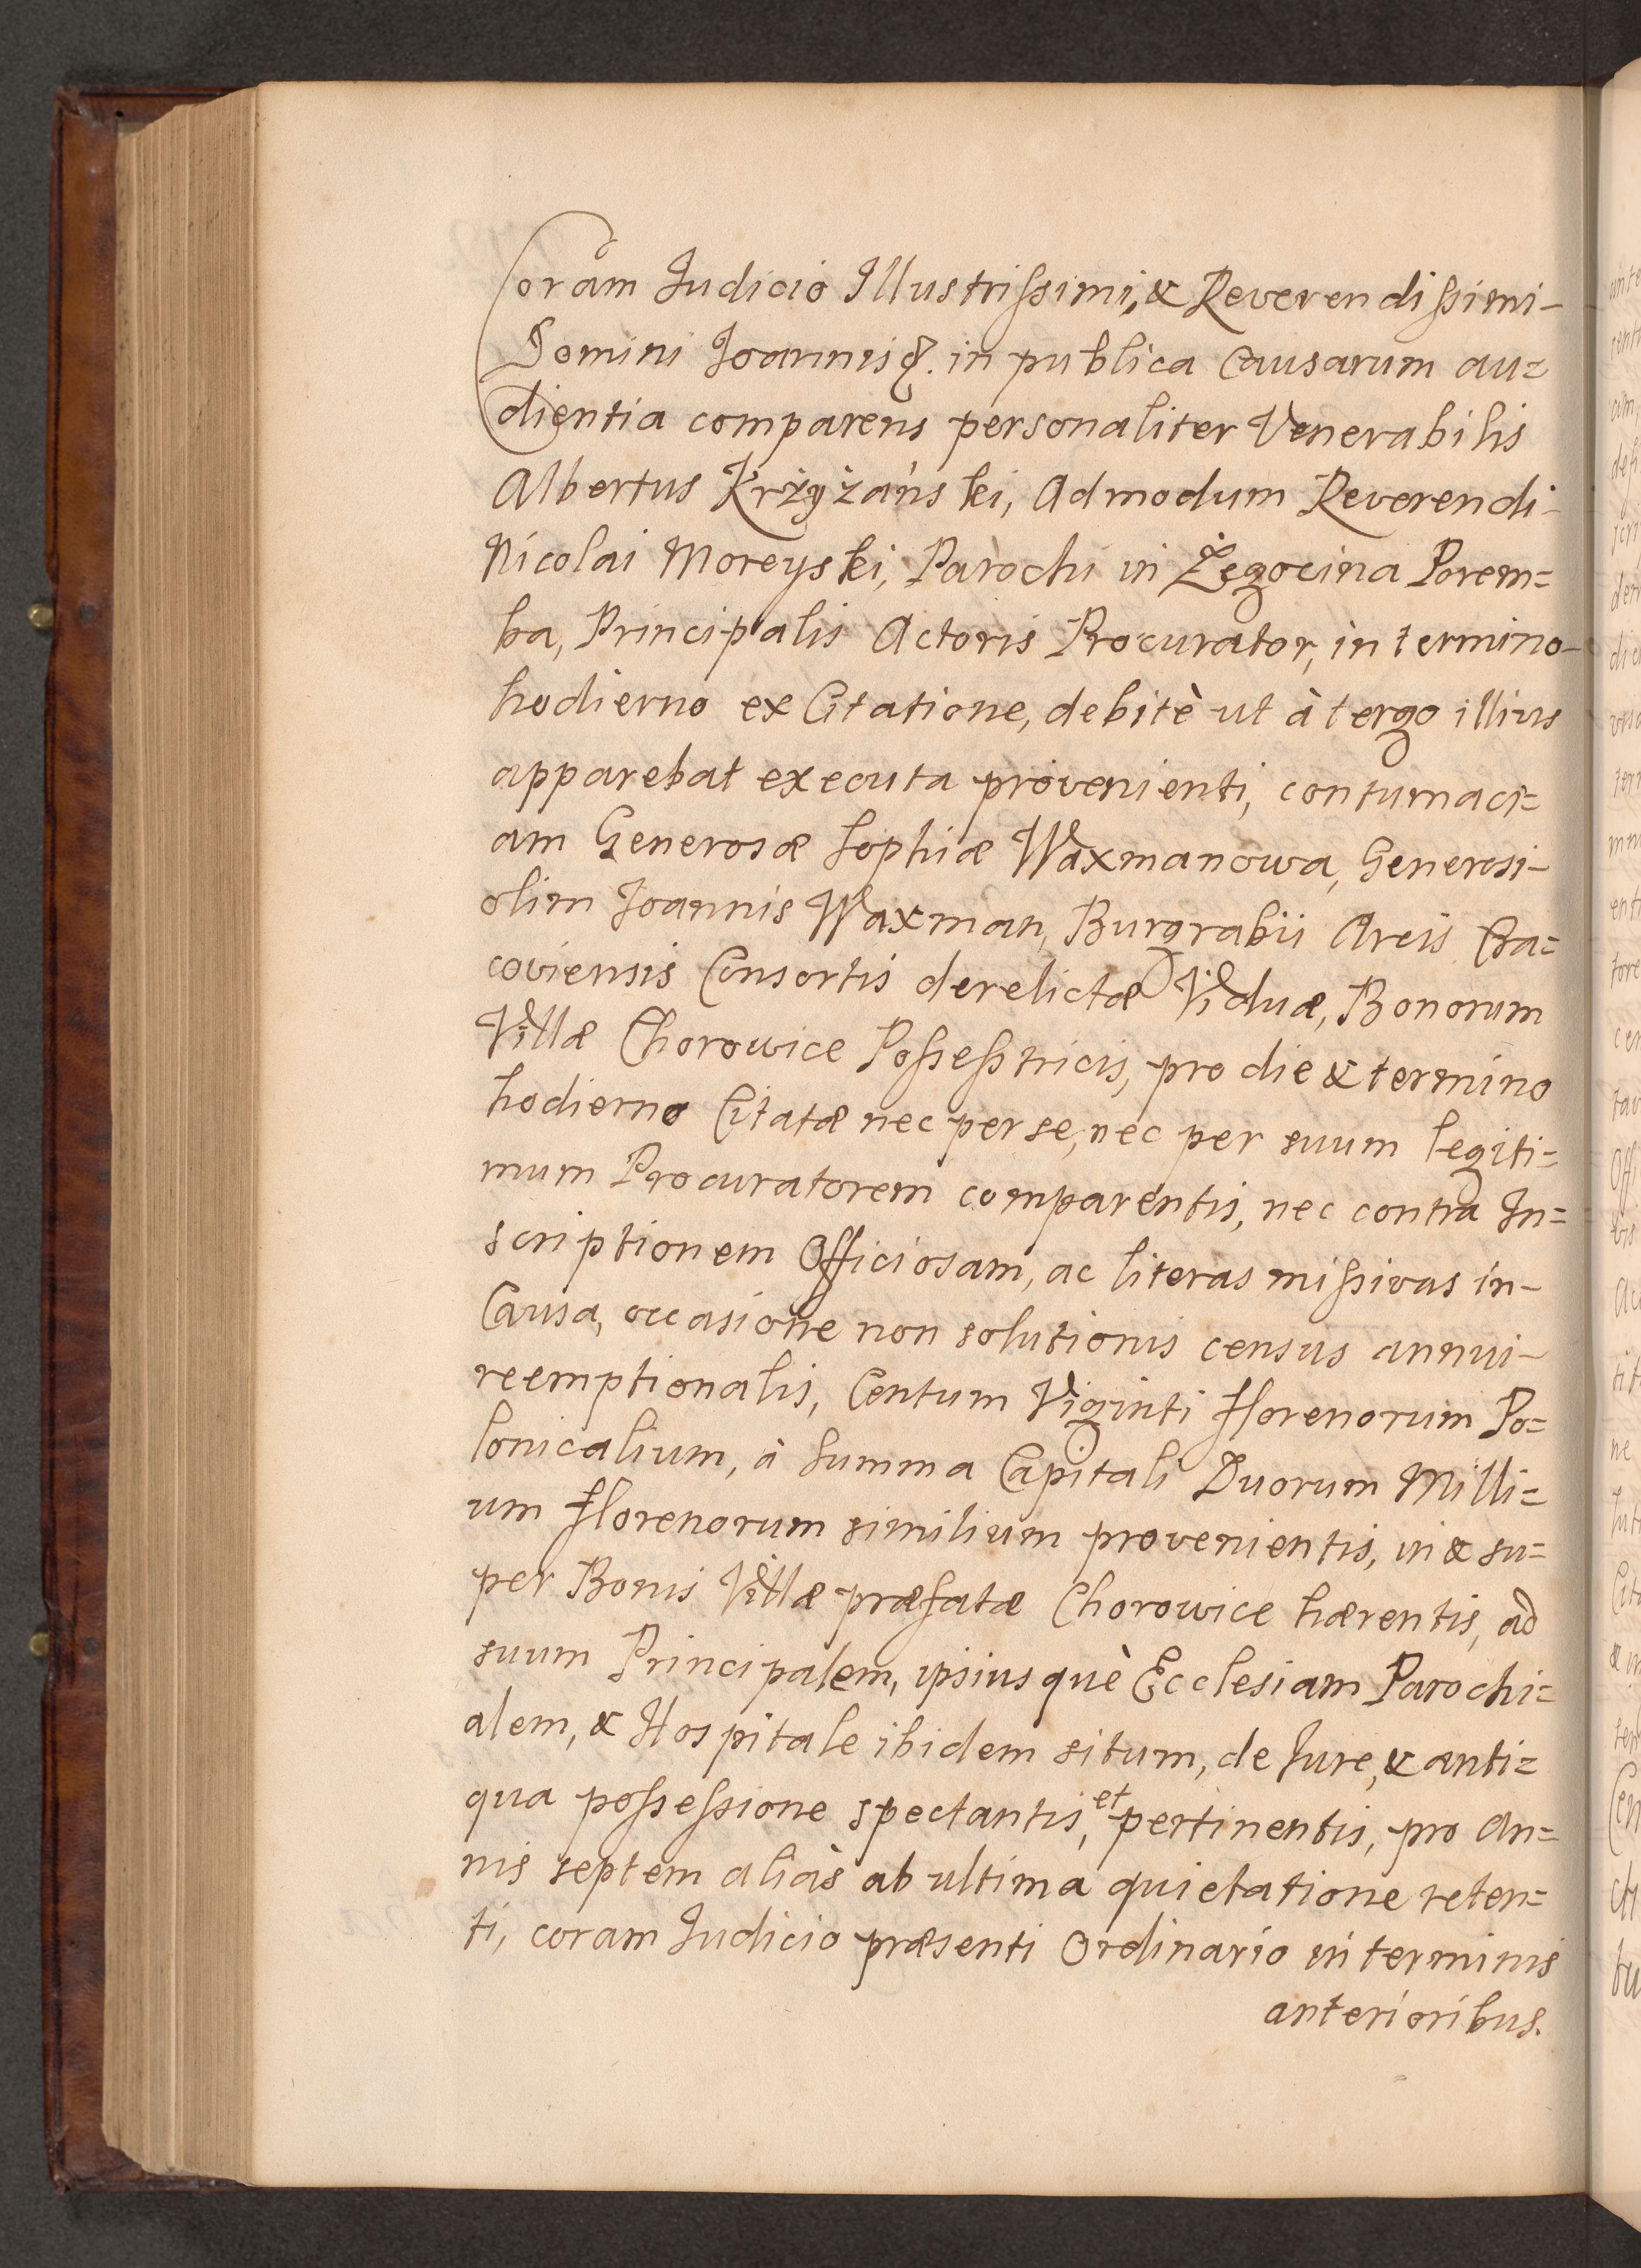 Coram Judicio Illustrissimi, & Reverendissimi-
Domini Joannis &. in publica Causarum au=
dientia comparens personaliter Venerabilis
Albertus Krżyżáński, Admodum Reverendi-
Nicolai Moreyski, Parochi in Żegocina Porem=
ba, Principalis Actoris Procurator, in termino-
hodierno ex Citatione, debitè ut à tergo illius
apparebat executa provenienti, contumaci=
am Generosæ Sophiæ Waxmanowa, Generosi-
olim Joannis Waxman, Burgrabii Arcis Cra=
coviensis Consortis derelictæ Viduæ, Bonorum
Villæ Chorowice Possestricis, pro die & termino
hodierno Citatæ nec per se, nec per suum legiti=
mum Procuratorem comparentis, nec contra In=
scriptionem Officiosam, ac literas missivas in-
Causa, occasione non solutionis census annui-
reemptionalis, Centum Viginti Florenorum Po=
lonicalium, à Summa Capitali Duorum Milli=
um Florenorum similium provenientis, in & su=
per Bonis Villæ præfatæ Chorowice hærentis, ad
suum Principalem, ipsiusquè Ecclesiam Parochi=
alem, & Hospitale ibidem situm, de Jure, & anti=
qua possessione spectantis, et pertinentis, pro An=
nis septem aliàs ab ultima quietatione reten=
ti, coram Judicio præsenti Ordinario in terminis
anterioribus.